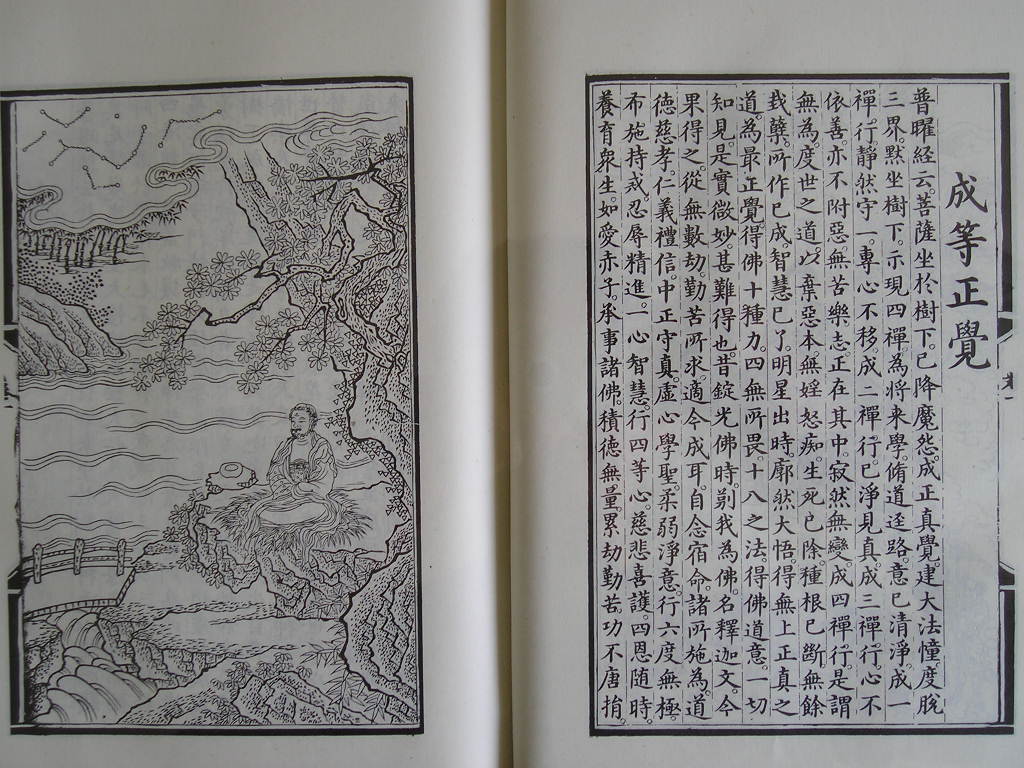 成等正覺
普曜經云。菩薩坐於樹下。已降魔怨。成正真覺。建大法幢。度脫
三界。默坐樹下。示現四禪。為將來學。脩道逕路。意已清淨。成一
禪行。靜然守一。專心不移。成二禪行。已淨見真。成三禪行。心不
依善。亦不附惡。無苦樂志。正在其中。寂然無變。成四禪行。是謂
無為。度世之道。以棄惡本。無婬怒痴。生死已除。種根已斷。無餘
栽孽。所作已成。智慧已了。明星出時。廓然大悟。得無上正真之
道。為最正覺。得佛十種力。四無所畏。十八之法。得佛道意。一切
知見。是實微妙。甚難得也。昔錠光佛時。剶我為佛。名釋迦文。今
果得之。從無數劫。勤苦所求。適今成耳。自念宿命。諸所施為。道
德慈孝。仁義禮信。中正守真。虛心學聖。柔弱淨意。行六度無極。
布施持戒。忍辱精進。一心智慧。行四等心。慈悲喜護。四恩随時。
養育眾生。如愛赤子。承事諸佛。積德無量。累劫勤苦。功不唐捐。
卷一